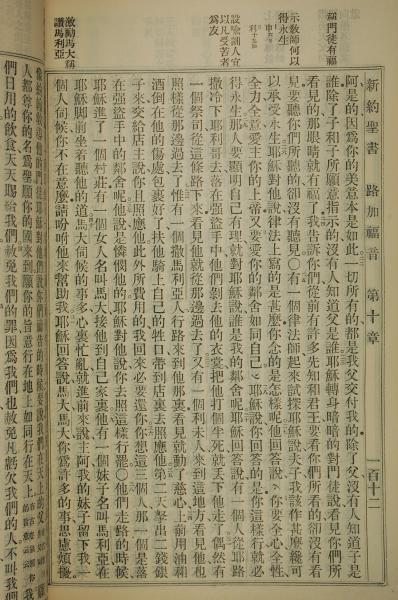 新約聖書 路加福音 第十章 百十二
謂門徒有福
示教師何以
得永生
設喻訓人宜
以凡受苦者
爲友
激勵馬大稱
讚馬利亞
阿是的因爲你的美意本是如此一切所有的都是我父交付我的除了父沒有人知道子是
誰除了子和子所願意指示的沒有人知道父是誰耶穌轉身暗暗的對門徒說看見你們所
看見的那眼睛就有福了我告訴你們從前有許多先知和君王要看你們所看的卻沒有看
見要聽你們所聽的卻沒有聽見○有一個律法師起來試探耶穌說夫子我該作甚麼纔可
以承受永生耶穌對他說律法上寫的是甚麼你念的是怎樣呢他回答說你要全心全性
全力全意愛主你的上帝又要愛你的鄰舍如同自己耶穌說你回答的是你這樣行就必
得永生那人要顯明自己有理就對耶穌說誰是我的鄰舍呢耶穌回答說有一個人從耶路
撒冷下耶利哥去落在強盜手中他們剝去他的衣裳把他打個半死就丟下他走了偶然有
一個祭司從這條路下來看見他就從那邊過去了又有一個利未人來到這地方看見他也
照樣從那邊過去了惟有一個撒馬利亞人行路來到他那裏看見就動了慈心上前用油和
酒倒在他的傷處包裹好了扶他騎上自己的牲口帶到店裏去照應他第二天拏出二錢銀
子來交給店主說你且照應他此外所費用的我回來必要還你你想這三個人那一個是落
在強盜手中的鄰舍呢他說是憐憫他的耶穌對他說你去照這樣行罷○他們走路的時候
耶穌進了一個村莊有一個女人名叫馬大接他到自己家裏他有一個妹子名叫馬利亞在
耶穌脚前坐着聽他的道馬大伺候的事多心裏忙亂就進前來說主阿我的妹子留下我一
個人伺候你不在意麼請吩咐他來幫助我耶穌回答說馬大馬大你爲許多的事思慮煩擾
人都尊你的名爲聖願你的國來到願你的旨意行在地上如同行在天上
們日用的飲食天天賜給我們赦免我們的罪因爲我們也赦免凡虧欠我們的人不叫我們